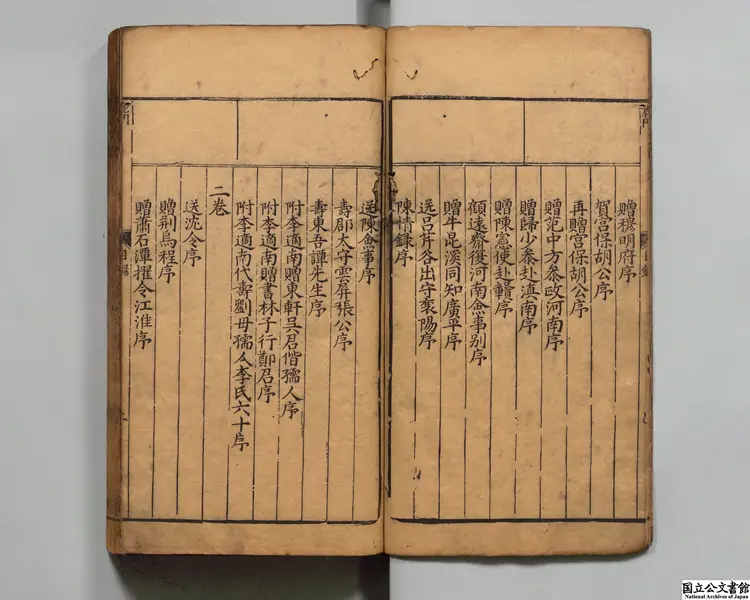 贈穆明府序
賀宮保胡公序
再贈宮保胡公序
贈范中方參政河南序
贈歸少參赴滇南序
贈陳憲使赴贛序
顧遠齋復河南僉事别序
贈牛昆溪同知廣平序
送呂芹谷出守襄陽序
陳情錄序
送陳僉事序
壽郡太守雲屏張公序
壽東吾譚先生序
附李適南贈東軒吳君偕孺人序
附李適南贈書林子行鄭君序
附李適南代壽劉母孺人李氏六十序
二卷
送沈令序
贈荆烏程序
贈蕭石潭擢令江淮序
国立公文書館
National Archives of Japan